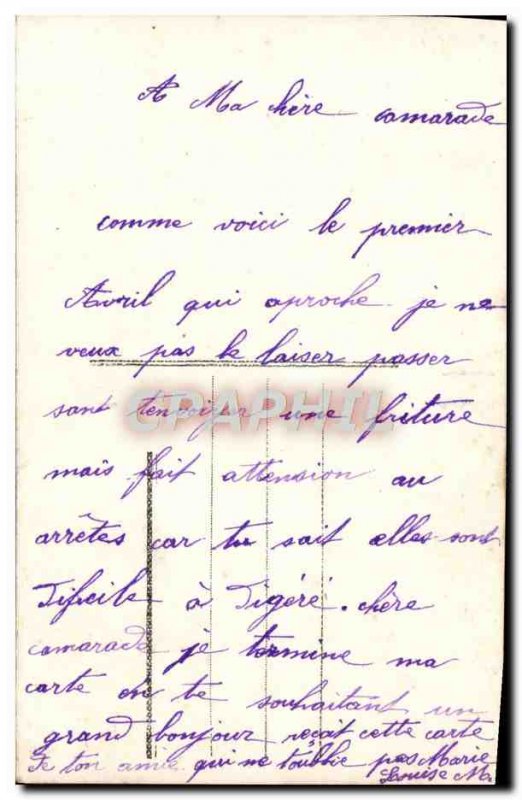 A Ma chère camarade
comme voici le premier
Avril qui aproche je ne
veux pas le laiser passer
sant tenvoyer une friture
mais fait attension au
arrêtes car tu sait elles sont
Dificile à Digéré. chère
camarade je termine ma
carte en te souhaitant un
grand bonjour reçait cette carte
de ton amie qui ne toublie pas Marie
Louise M.
CPAPHIL